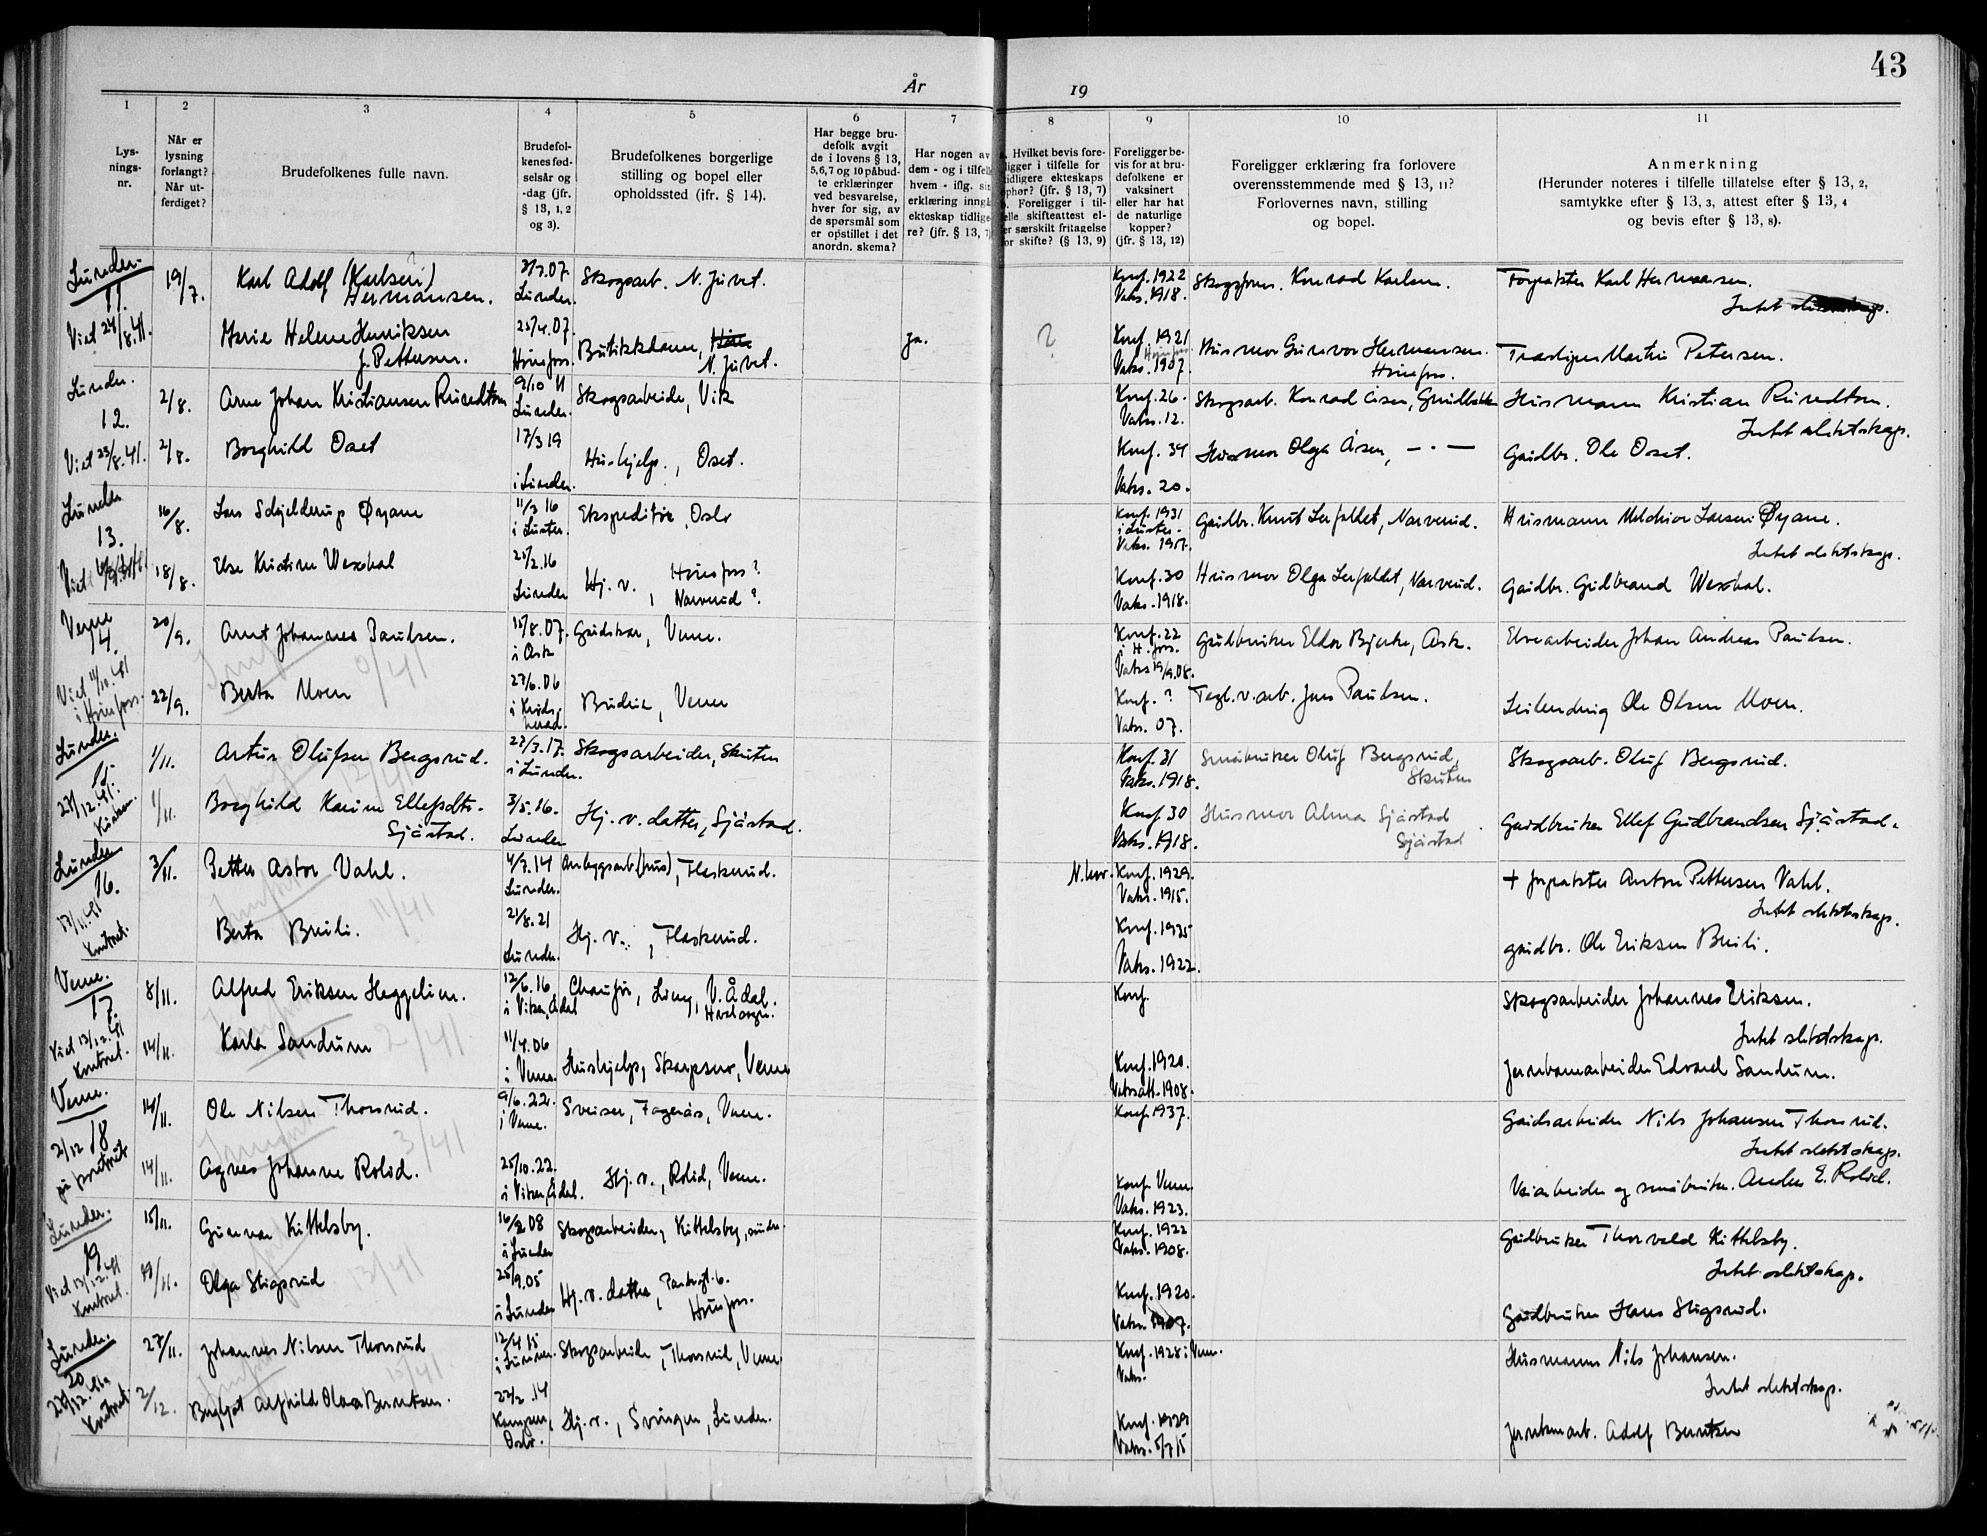 43
År
19
1
2
3
4
5
6
7
8
9
10
11
Lys-
nings-
nr.
Når er
lysning
forlangt?
Når ut-
ferdiget?
Brudefolkenes fulle navn.
Brudefol-
kenes fød-
selsår og
-dag (jfr.
§ 13, 1, 2
og 3).
Brudefolkenes borgerlige
stilling og bopel eller
opholdssted (ifr. § 14).
Har begge bru-
defolk avgit
de i lovens § 13,
5, 6, 7 og 10 påbud-
te erklæringer
ved besvarelse,
hver for sig, av
de spørsmål som
er opstillet i det
anordn. skema?
Har nogen av
dem - og i tilfelle
hvem - iflg. sin
erklæring inngå
ekteskap tidlige-
re? (jfr. § 13, 7)
a. Hvilket bevis fore-
ligger i tilfelle for
tidligere ekteskaps
ophør? (jfr. § 13, 7)
b. Foreligger i til-
felle skifteattest el-
er særskilt fritagelse
for skifte? (§ 13, 9)
Foreligger be-
vis for at bru-
defolkene er
vaksinert
eller har hat
de naturlige
kopper?
(jfr. § 13, 12)
Foreligger erklæring fra forlovere
overensstemmende med § 13, 11?
Forlovernes navn, stilling
og bopel.
Anmerkning
(Herunder noteres i tilfelle tillatelse efter § 13, 2,
samtykke efter § 13, 3, attest efter § 13, 4
og bevis efter § 13, 8).
Lunder. 11. 19/7. Karl Adolf (Karlsen) Hermansen. Lunder. Skogsarb. N. Juvet. Konf. 1922 Vaks. 1918. Konrad Karlsen. Forpakter Karl Hermansen.
Intet
Viet 24/8.41. Marie Helene Henriksen f. Pettersen. 25/4.07. Hønefoss. Butikkdame, N. Juvet. Ja. ? Konf. 1921 Hønefoss Vaks. 1907. Husmor Gunvor Hermansen. Hønefoss. Martin Petersen.
Lunder. 12. 2/8. Arne Johan Kristiansen Rundtom 9/10 11 Lunder. Skogsarbeider, Vik Konf. 26. Vaks. 12. Skogsarb. Konrad Åsen, Husmann Kristian Rundtom.
Intet slektskap.
Viet 23/8.41. 2/8. Borghild Oset 17/3 19 i Lunder. Hushjelp., Oset. Konf. 34 Vaks. 20. Husmor Olga Åsen, — · — Gardbr. Ole Oset.
Lunder 13. 16/8. Lars Schjelderup Øyane 11/3 16 i Luster. Ekspeditør, Oslo Konf. 1931 i Luster. Gardbr. Knut Narverud. Husmann Melchior Larsen Øyane.
Intet slektskap.
Viet 18/8. Else Kristine Wexhal 25/2.16 Lunder Hj. v., Hønefoss? Narverud? Konf. 30 Vaks. 1918. Husmor Olga Narverud. Gardbr. Gudbrand Wexhal.
Veme 14. 20/9. Arnt Johannes Paulsen. 15/8.07. i Ask Gardskar, Veme. Konf. 22 i H.foss. Vaks 19/9.08. Gardbruker Eldor Bjerke, Ask. Elvearbeider Johan Andreas Paulsen.
Viet 11/10.41 i Hønefoss. 22/9. Berta Moen 27/6.06 i Krødsherad. Budeie, Veme Konf. ? Vaks. 07. Tegl.v.arb. Jens Paulsen. Leilending Ole Olsen Moen.
Lunder. 15. 1/11. Artur Olufsen Bergsrud. 27/3.17. i Lunder. Skogsarbeider, Skuten Konf. 31 Vaks. 1918. Småbruker Oluf Bergsrud, Skuten Skogsarb. Oluf Bergsrud.
27/12.41. Kirken. 1/11. Borghild Karine Ellefsdtr. Sjåstad. 3/5.16. Lunder Hj. v. datter, Sjåstad. Konf 30 Vaks. 1918. Husmor Alma Sjåstad Sjåstad Gardbruker Ellef Gudbrandsen Sjåstad.
Lunder 16. 3/11. Petter Astor Vahl. 4/7.14 Lunder. Anleggsarb (hus), Flaskerud. N.hov. Konf. 1929. Vaks. 1915. + forpakter Anton Pettersen Vahl.
Intet slektskap.
17/11.41 Kontoret. Berta Breili. 21/8.21 Lunder. Hj. v., Flaskerud. Konf. 1935 Vaks. 1922. gardbr. Ole Eriksen Breili.
11/41
Veme. 17. 8/11. Alfred Eriksen Heggelien. 12/6.16 i Viker, Ådal Chaufør, V. Ådal. Konf. Skogsarbeider Johannes Eriksen.
Intet slektskap.
Viet 13/12.41 Kontoret. 14/11. Karla Sandum 2/41 11/4.06 i Veme. Hushjelp, Veme Konf. 1920. Vaksatt. 1908. Jernbanearbeider Edvard Sandum.
Veme. 18 14/11. Ole Nilsen Thorsrud. 9/6.22. i Veme. Sveiser, Fagerås, Veme. Konf. 1937. Gardsarbeider Nils Johansen Thorsrud.
Intet slektskap.
21/12 på kontoret 14/11. Agnes Johanne Rolid. 3/41 25/10.22. i Viker, Ådal. Hj. v., Rolid, Veme. Konf. Veme Vaks. 1923. Veiarbeider og småbruker. Anders E. Rolid.
Lunder. 19 15/11. Gunnar Kittelsby. 16/2.08 i Lunder Skogsarbeider, Kittelsby, Konf. 1922 Vaks. 1908. Gardbruker Thorvald Kittelsby.
Intet slektskap.
Viet 13/12.41 Kontoret. 19/11. Olga Stigsrud 13/41 25/9.05 i Lunder Hj. v. datter, Hønefoss. Konf. 1920. Vaks. 1907. Gardbruker Hans Stigsrud.
Lunder. 20 27/11. Johannes Nilsen Thorsrud 15/41 12/4 15 i Lunder. Skogsarbeider, Thorsrud, Veme Konf. 1928 i Veme. Vaks. Husmann Nils Johansen.
Intet slektskap.
Kontoret. 2/12. Bergljot Alfhild Olava Berntsen. 22/2.14 Kampen, Oslo. Hj. v., Svingen, Lunder. Konf. 1929 Vaks. 5/7/15 Jernbanearb. Adolf Berntsen